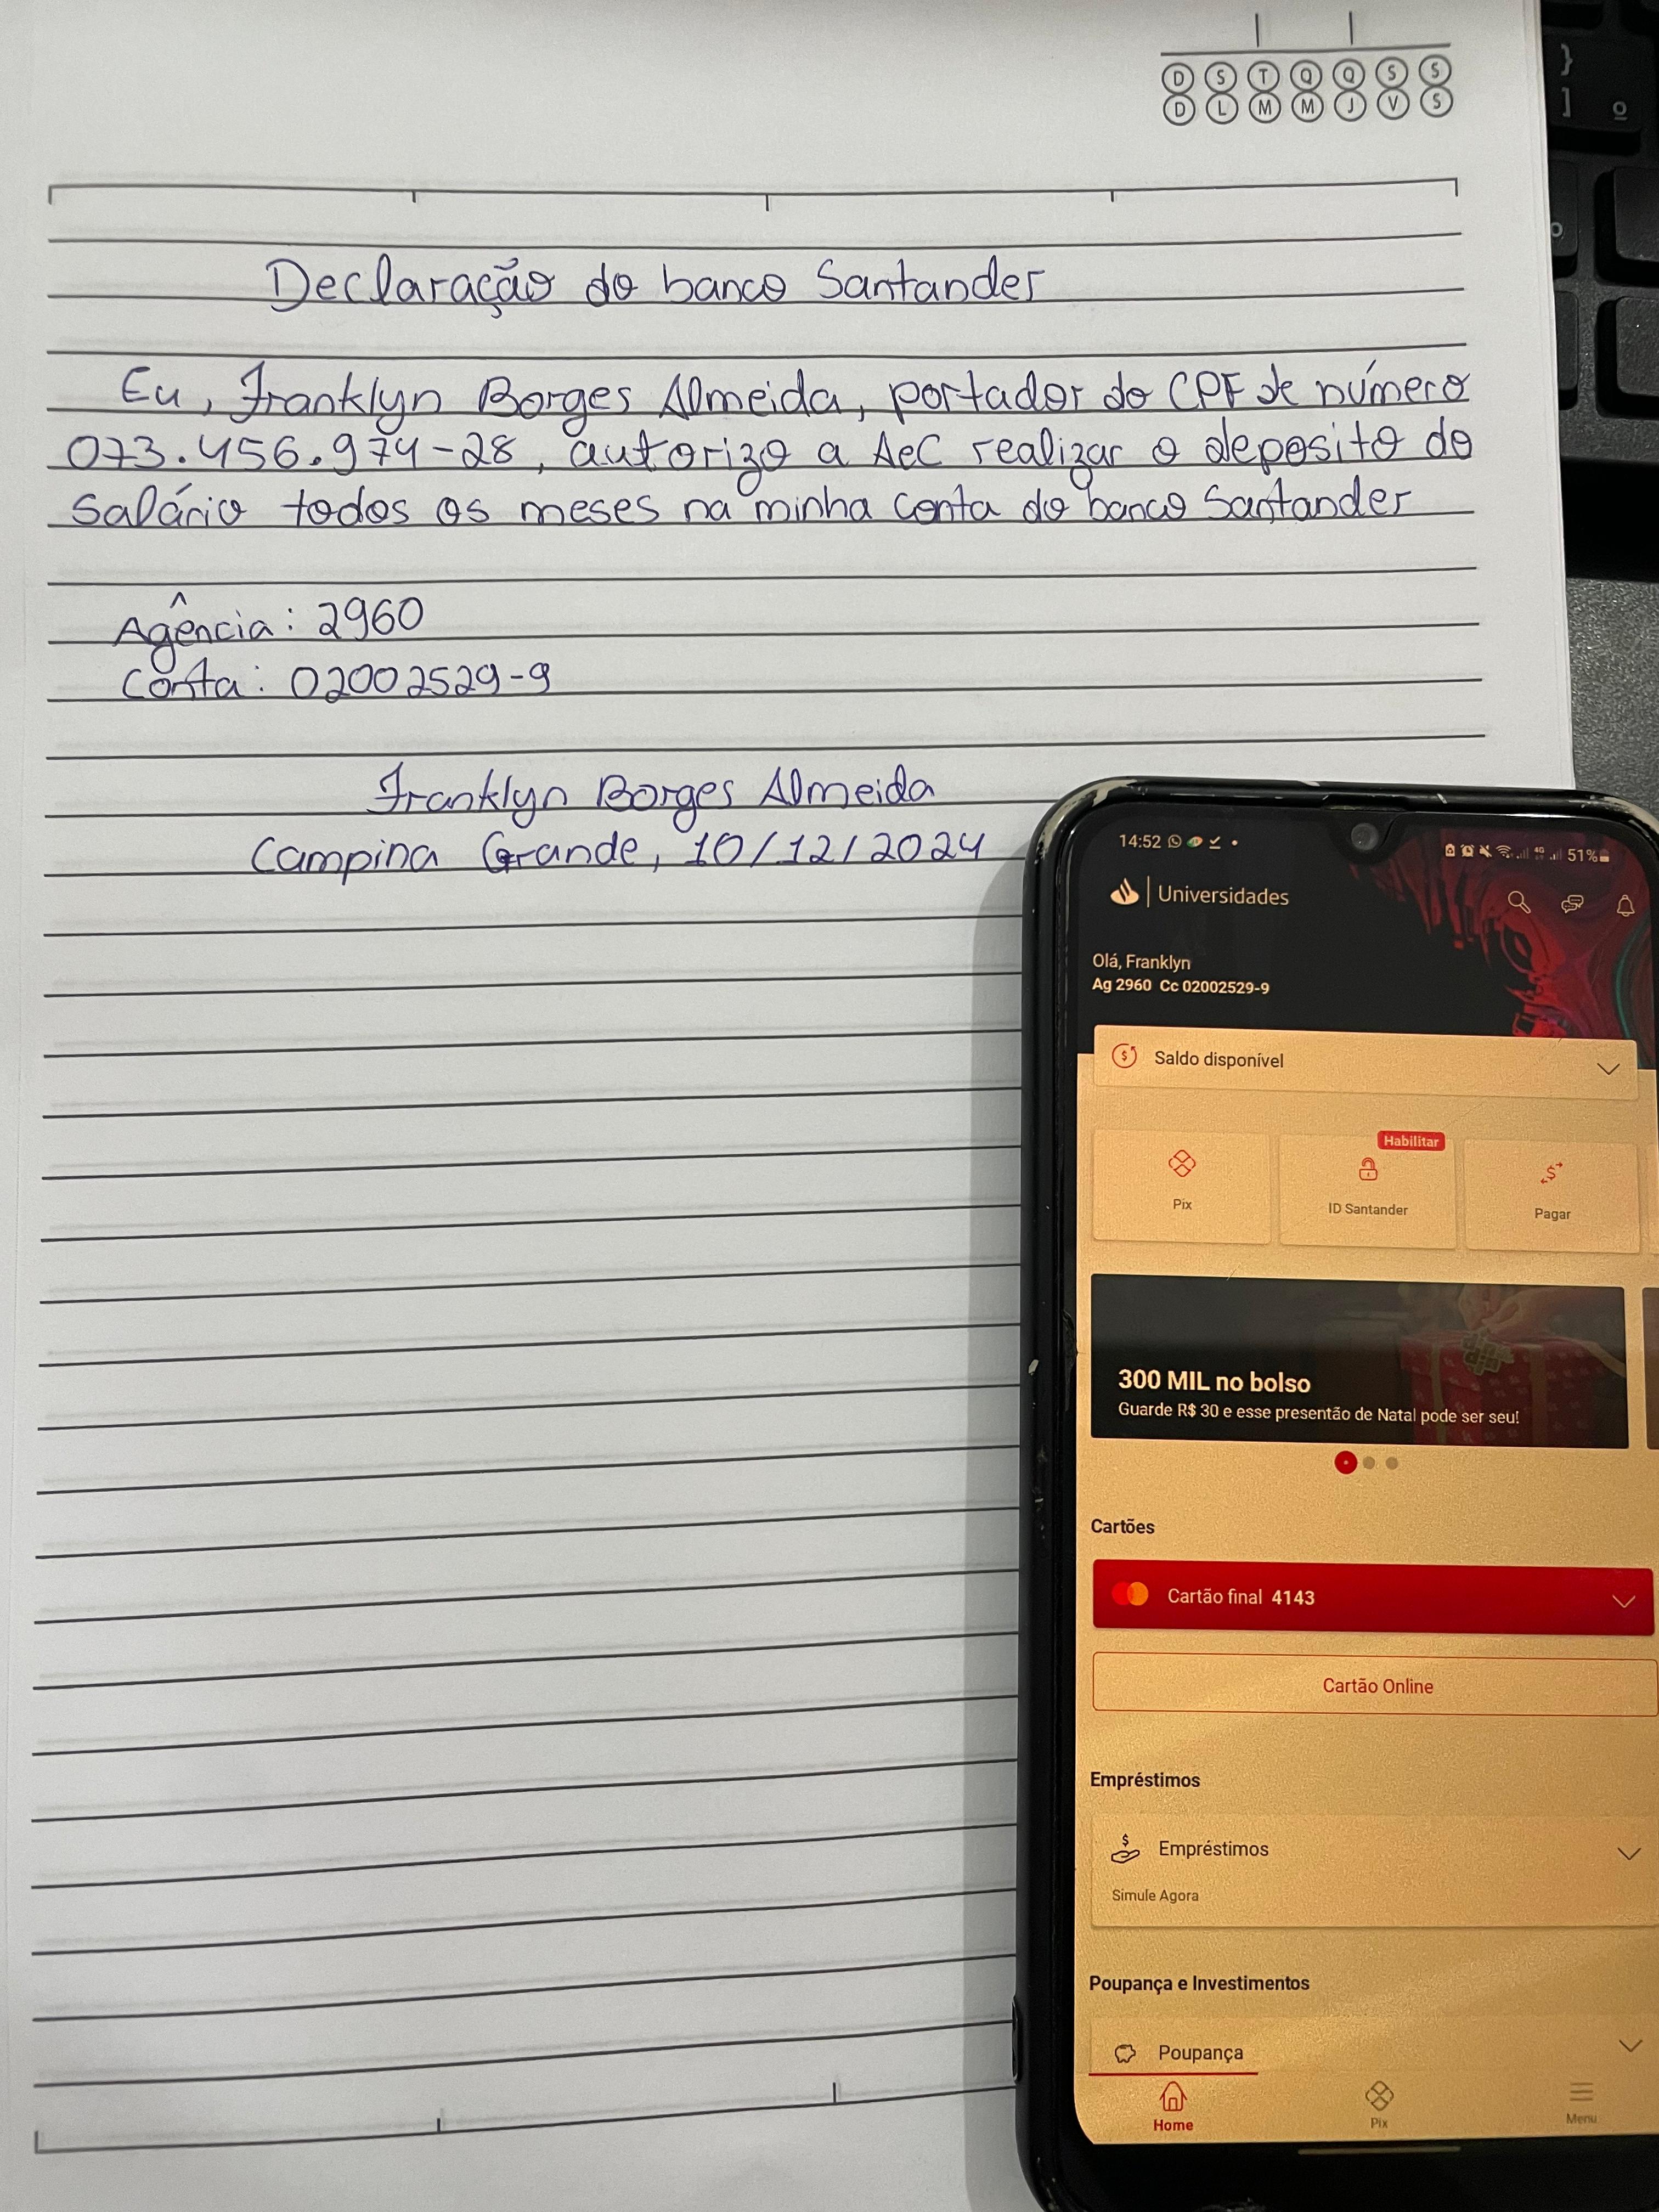 D S T Q Q S S
D L M M J V S
Declaração do banco Santander
Eu, Franklyn Borges Almeida, portador do CPF de número
073.456.974-28, autorizo a AeC realizar o deposito do
salário todos os meses na minha conta do banco Santander
Agência: 2960
Conta: 02002529-9
Franklyn Borges Almeida
Campina Grande, 10/12/2024
} 
] º
14:52 4G 51%
Universidades
Olá, Franklyn
Ag 2960 Cc 02002529-9
Saldo disponível
Habilitar
Pix
ID Santander
Pagar
300 MIL no bolso
Guarde R$ 30 e esse presentão de Natal pode ser seu!
Cartões
Cartão final 4143
Cartão Online
Empréstimos
Empréstimos
Simule Agora
Poupança e Investimentos
Poupança
Home
Pix
Menu